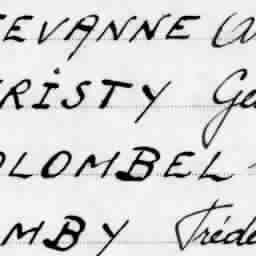 EVANNE
RISTY Ge
OLOMBEL
MBY Fréde